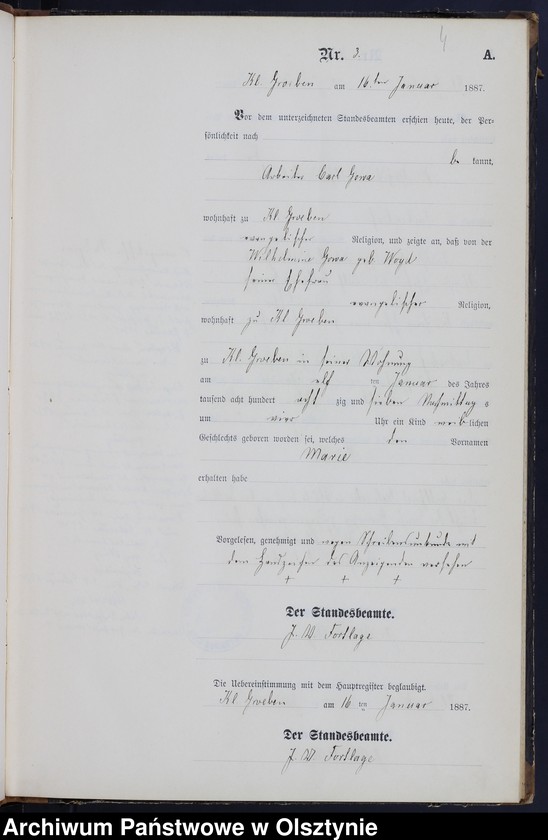 4
Nr. 3. A.
Kl. Groeben am 16. ten Januar 1887.
Vor dem unterzeichneten Standesbeamten erschien heute, der Per-
sönlichkeit nach
be kannt,
Arbeiter Carl Gowa
wohnhaft zu Kl. Groeben
evangelischer Religion, und zeigte an, daß von der
Wilhelmine Gowa geb. Woyd
seiner Ehefrau
evangelischer Religion,
wohnhaft zu Kl. Groeben
zu Kl. Groeben in seiner Wohnung
am elf ten Januar des Jahres
tausend acht hundert acht zig und sieben Nachmittag s
um vier Uhr ein Kind weib lichen
Geschlechts geboren worden sei, welches den Vornamen
Marie
erhalten habe
Vorgelesen, genehmigt und wegen Schreibensunkunde mit
dem Handzeichen des Anzeigenden versehen
+ + +
Der Standesbeamte.
J. W. Fortlage
Die Uebereinstimmung mit dem Hauptregister beglaubigt.
Kl Groeben am 16 ten Januar 1887.
Der Standesbeamte.
J. W. Fortlage
Archiwum Państwowe w Olsztynie